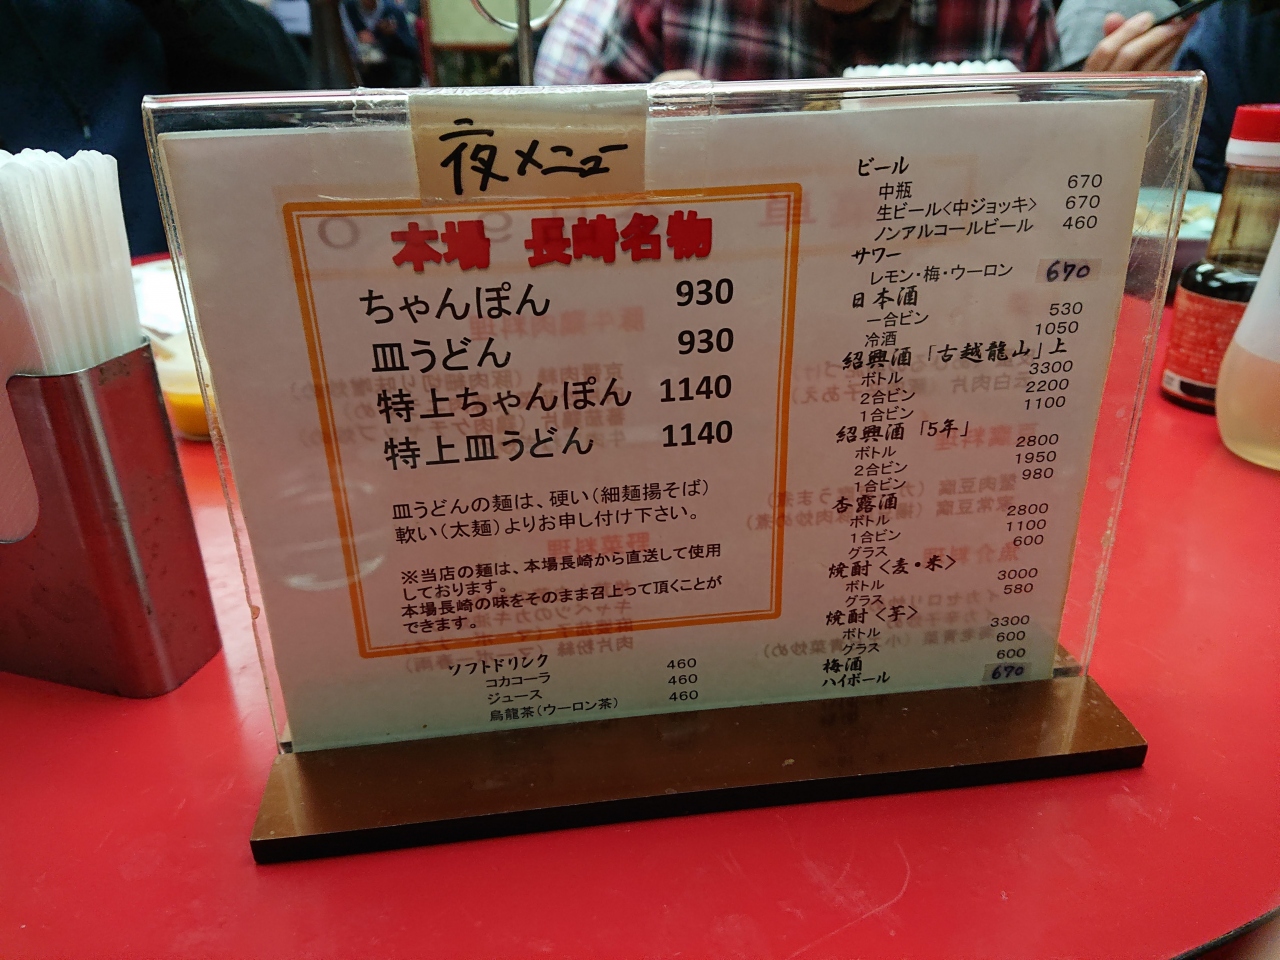 夜メニュー
本場 長崎名物
ちゃんぽん 930
皿うどん 930
特上ちゃんぽん 1140
特上皿うどん 1140
皿うどんの麺は、硬い(細麺揚そば)
軟い(太麺)よりお申し付け下さい。
※当店の麺は、本場長崎から直送して使用
しております。
本場長崎の味をそのまま召上って頂くことが
できます。
ソフトドリンク
コカコーラ 460
ジュース 460
烏龍茶(ウーロン茶) 460
ビール
中瓶 670
生ビール<中ジョッキ> 670
ノンアルコールビール 460
サワー
レモン・梅・ウーロン 670
日本酒
一合ビン 530
冷酒 1050
紹興酒「古越龍山」上
ボトル 3300
2合ビン 2200
1合ビン 1100
紹興酒「5年」
ボトル 2800
2合ビン 1950
1合ビン 980
杏露酒
ボトル 2800
1合ビン 1100
グラス 600
焼酎<麦・米>
ボトル 3000
グラス 580
焼酎<芋>
ボトル 3300
グラス 600
梅酒 600
ハイボール 670